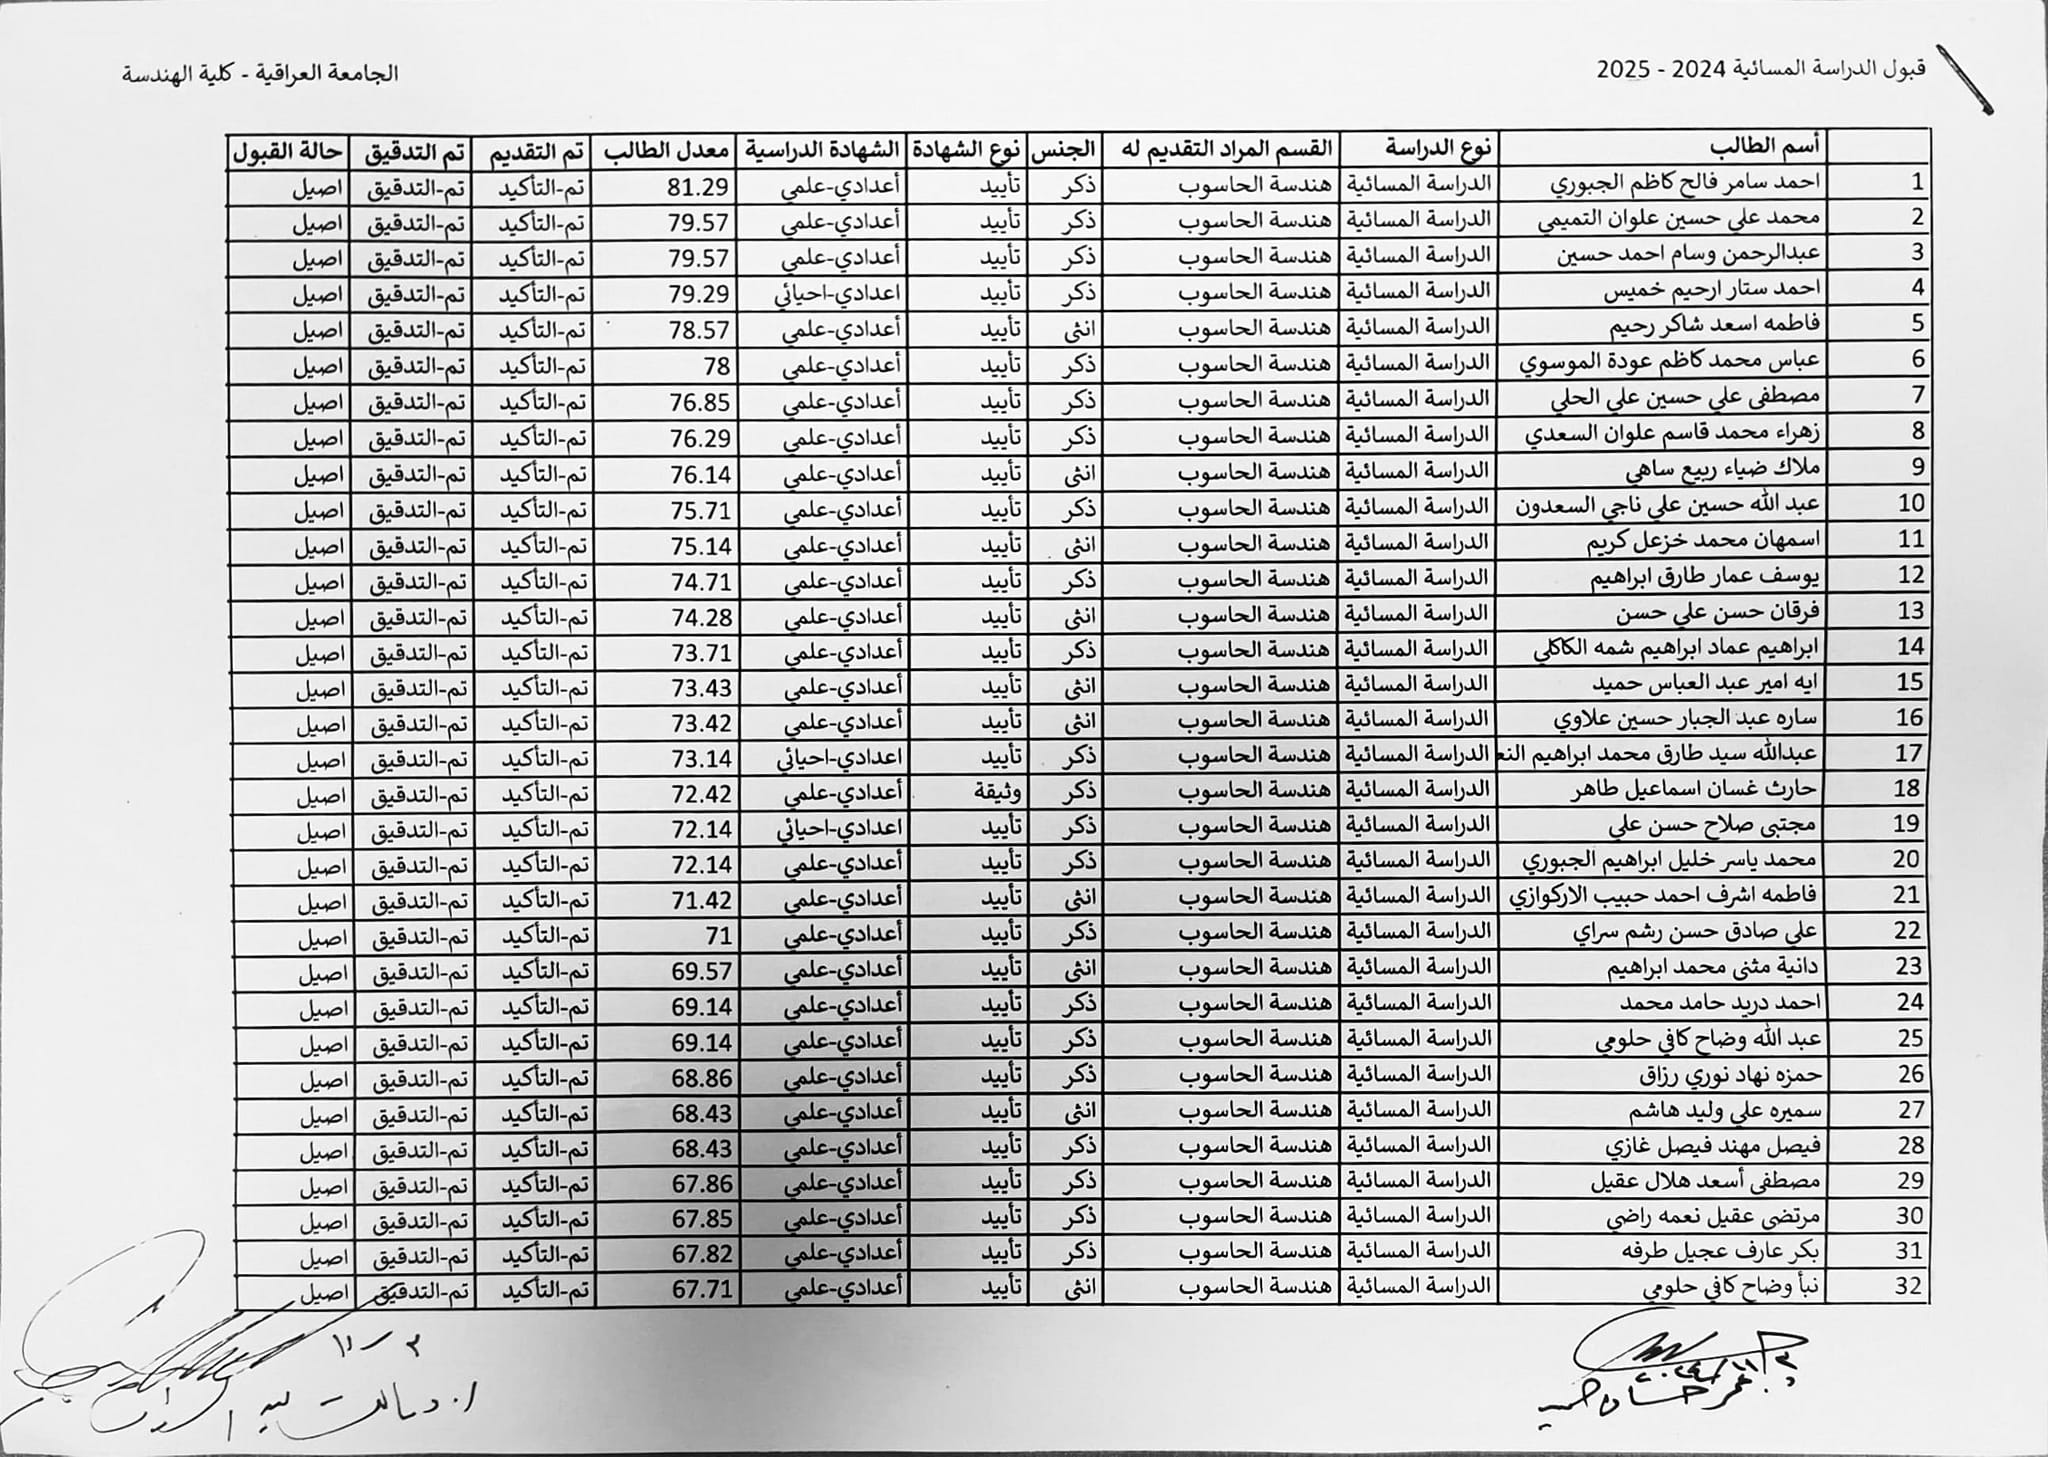 قبول الدراسة المسائية 2024 - 2025
الجامعة العراقية - كلية الهندسة
أسم الطالب نوع الدراسة القسم المراد التقديم له الجنس نوع الشهادة الشهادة الدراسية معدل الطالب تم التقديم تم التدقيق حالة القبول
1 احمد سامر فالح كاظم الجبوري الدراسة المسائية هندسة الحاسوب ذكر تأييد أعدادي-علمي 81.29 تم-التأكيد تم-التدقيق اصيل
2 محمد علي حسين علوان التميمي الدراسة المسائية هندسة الحاسوب ذكر تأييد أعدادي-علمي 79.57 تم-التأكيد تم-التدقيق اصيل
3 عبدالرحمن وسام احمد حسين الدراسة المسائية هندسة الحاسوب ذكر تأييد أعدادي-علمي 79.57 تم-التأكيد تم-التدقيق اصيل
4 احمد ستار ارحيم خميس الدراسة المسائية هندسة الحاسوب ذكر تأييد اعدادي-احيائي 79.29 تم-التأكيد تم-التدقيق اصيل
5 فاطمه اسعد شاكر رحيم الدراسة المسائية هندسة الحاسوب انثى تأييد أعدادي-علمي 78.57 تم-التأكيد تم-التدقيق اصيل
6 عباس محمد كاظم عودة الموسوي الدراسة المسائية هندسة الحاسوب ذكر تأييد أعدادي-علمي 78 تم-التأكيد تم-التدقيق اصيل
7 مصطفى علي حسين علي الحلي الدراسة المسائية هندسة الحاسوب ذكر تأييد أعدادي-علمي 76.85 تم-التأكيد تم-التدقيق اصيل
8 زهراء محمد قاسم علوان السعدي الدراسة المسائية هندسة الحاسوب ذكر تأييد أعدادي-علمي 76.29 تم-التأكيد تم-التدقيق اصيل
9 ملاك ضياء ربيع ساهي الدراسة المسائية هندسة الحاسوب انثى تأييد أعدادي-علمي 76.14 تم-التأكيد تم-التدقيق اصيل
10 عبد الله حسين علي ناجي السعدون الدراسة المسائية هندسة الحاسوب ذكر تأييد أعدادي-علمي 75.71 تم-التأكيد تم-التدقيق اصيل
11 اسمهان محمد خزعل كريم الدراسة المسائية هندسة الحاسوب انثى تأييد أعدادي-علمي 75.14 تم-التأكيد تم-التدقيق اصيل
12 يوسف عمار طارق ابراهيم الدراسة المسائية هندسة الحاسوب ذكر تأييد أعدادي-علمي 74.71 تم-التأكيد تم-التدقيق اصيل
13 فرقان حسن علي حسن الدراسة المسائية هندسة الحاسوب انثى تأييد أعدادي-علمي 74.28 تم-التأكيد تم-التدقيق اصيل
14 ابراهيم عماد ابراهيم شمه الكاكلي الدراسة المسائية هندسة الحاسوب ذكر تأييد أعدادي-علمي 73.71 تم-التأكيد تم-التدقيق اصيل
15 ايه امير عبد العباس حميد الدراسة المسائية هندسة الحاسوب انثى تأييد أعدادي-علمي 73.43 تم-التأكيد تم-التدقيق اصيل
16 ساره عبد الجبار حسين علاوي الدراسة المسائية هندسة الحاسوب انثى تأييد أعدادي-علمي 73.42 تم-التأكيد تم-التدقيق اصيل
17 عبدالله سيد طارق محمد ابراهيم النع الدراسة المسائية هندسة الحاسوب ذكر تأييد اعدادي-احيائي 73.14 تم-التأكيد تم-التدقيق اصيل
18 حارث غسان اسماعيل طاهر الدراسة المسائية هندسة الحاسوب ذكر وثيقة أعدادي-علمي 72.42 تم-التأكيد تم-التدقيق اصيل
19 مجتبى صلاح حسن علي الدراسة المسائية هندسة الحاسوب ذكر تأييد اعدادي-احيائي 72.14 تم-التأكيد تم-التدقيق اصيل
20 محمد ياسر خليل ابراهيم الجبوري الدراسة المسائية هندسة الحاسوب ذكر تأييد أعدادي-علمي 72.14 تم-التأكيد تم-التدقيق اصيل
21 فاطمه اشرف احمد حبيب الاركوازي الدراسة المسائية هندسة الحاسوب انثى تأييد أعدادي-علمي 71.42 تم-التأكيد تم-التدقيق اصيل
22 علي صادق حسن رشم سراي الدراسة المسائية هندسة الحاسوب ذكر تأييد أعدادي-علمي 71 تم-التأكيد تم-التدقيق اصيل
23 دانية مثنى محمد ابراهيم الدراسة المسائية هندسة الحاسوب انثى تأييد أعدادي-علمي 69.57 تم-التأكيد تم-التدقيق اصيل
24 احمد دريد حامد محمد الدراسة المسائية هندسة الحاسوب ذكر تأييد أعدادي-علمي 69.14 تم-التأكيد تم-التدقيق اصيل
25 عبد الله وضاح كافي حلومي الدراسة المسائية هندسة الحاسوب ذكر تأييد أعدادي-علمي 69.14 تم-التأكيد تم-التدقيق اصيل
26 حمزه نهاد نوري رزاق الدراسة المسائية هندسة الحاسوب ذكر تأييد أعدادي-علمي 68.86 تم-التأكيد تم-التدقيق اصيل
27 سميره علي وليد هاشم الدراسة المسائية هندسة الحاسوب انثى تأييد أعدادي-علمي 68.43 تم-التأكيد تم-التدقيق اصيل
28 فيصل مهند فيصل غازي الدراسة المسائية هندسة الحاسوب ذكر تأييد أعدادي-علمي 68.43 تم-التأكيد تم-التدقيق اصيل
29 مصطفى أسعد هلال عقيل الدراسة المسائية هندسة الحاسوب ذكر تأييد أعدادي-علمي 67.86 تم-التأكيد تم-التدقيق اصيل
30 مرتضى عقيل نعمه راضي الدراسة المسائية هندسة الحاسوب ذكر تأييد أعدادي-علمي 67.85 تم-التأكيد تم-التدقيق اصيل
31 بكر عارف عجيل طرفه الدراسة المسائية هندسة الحاسوب ذكر تأييد أعدادي-علمي 67.82 تم-التأكيد تم-التدقيق اصيل
32 نبأ وضاح كافي حلومي الدراسة المسائية هندسة الحاسوب انثى تأييد أعدادي-علمي 67.71 تم-التأكيد تم-التدقيق اصيل